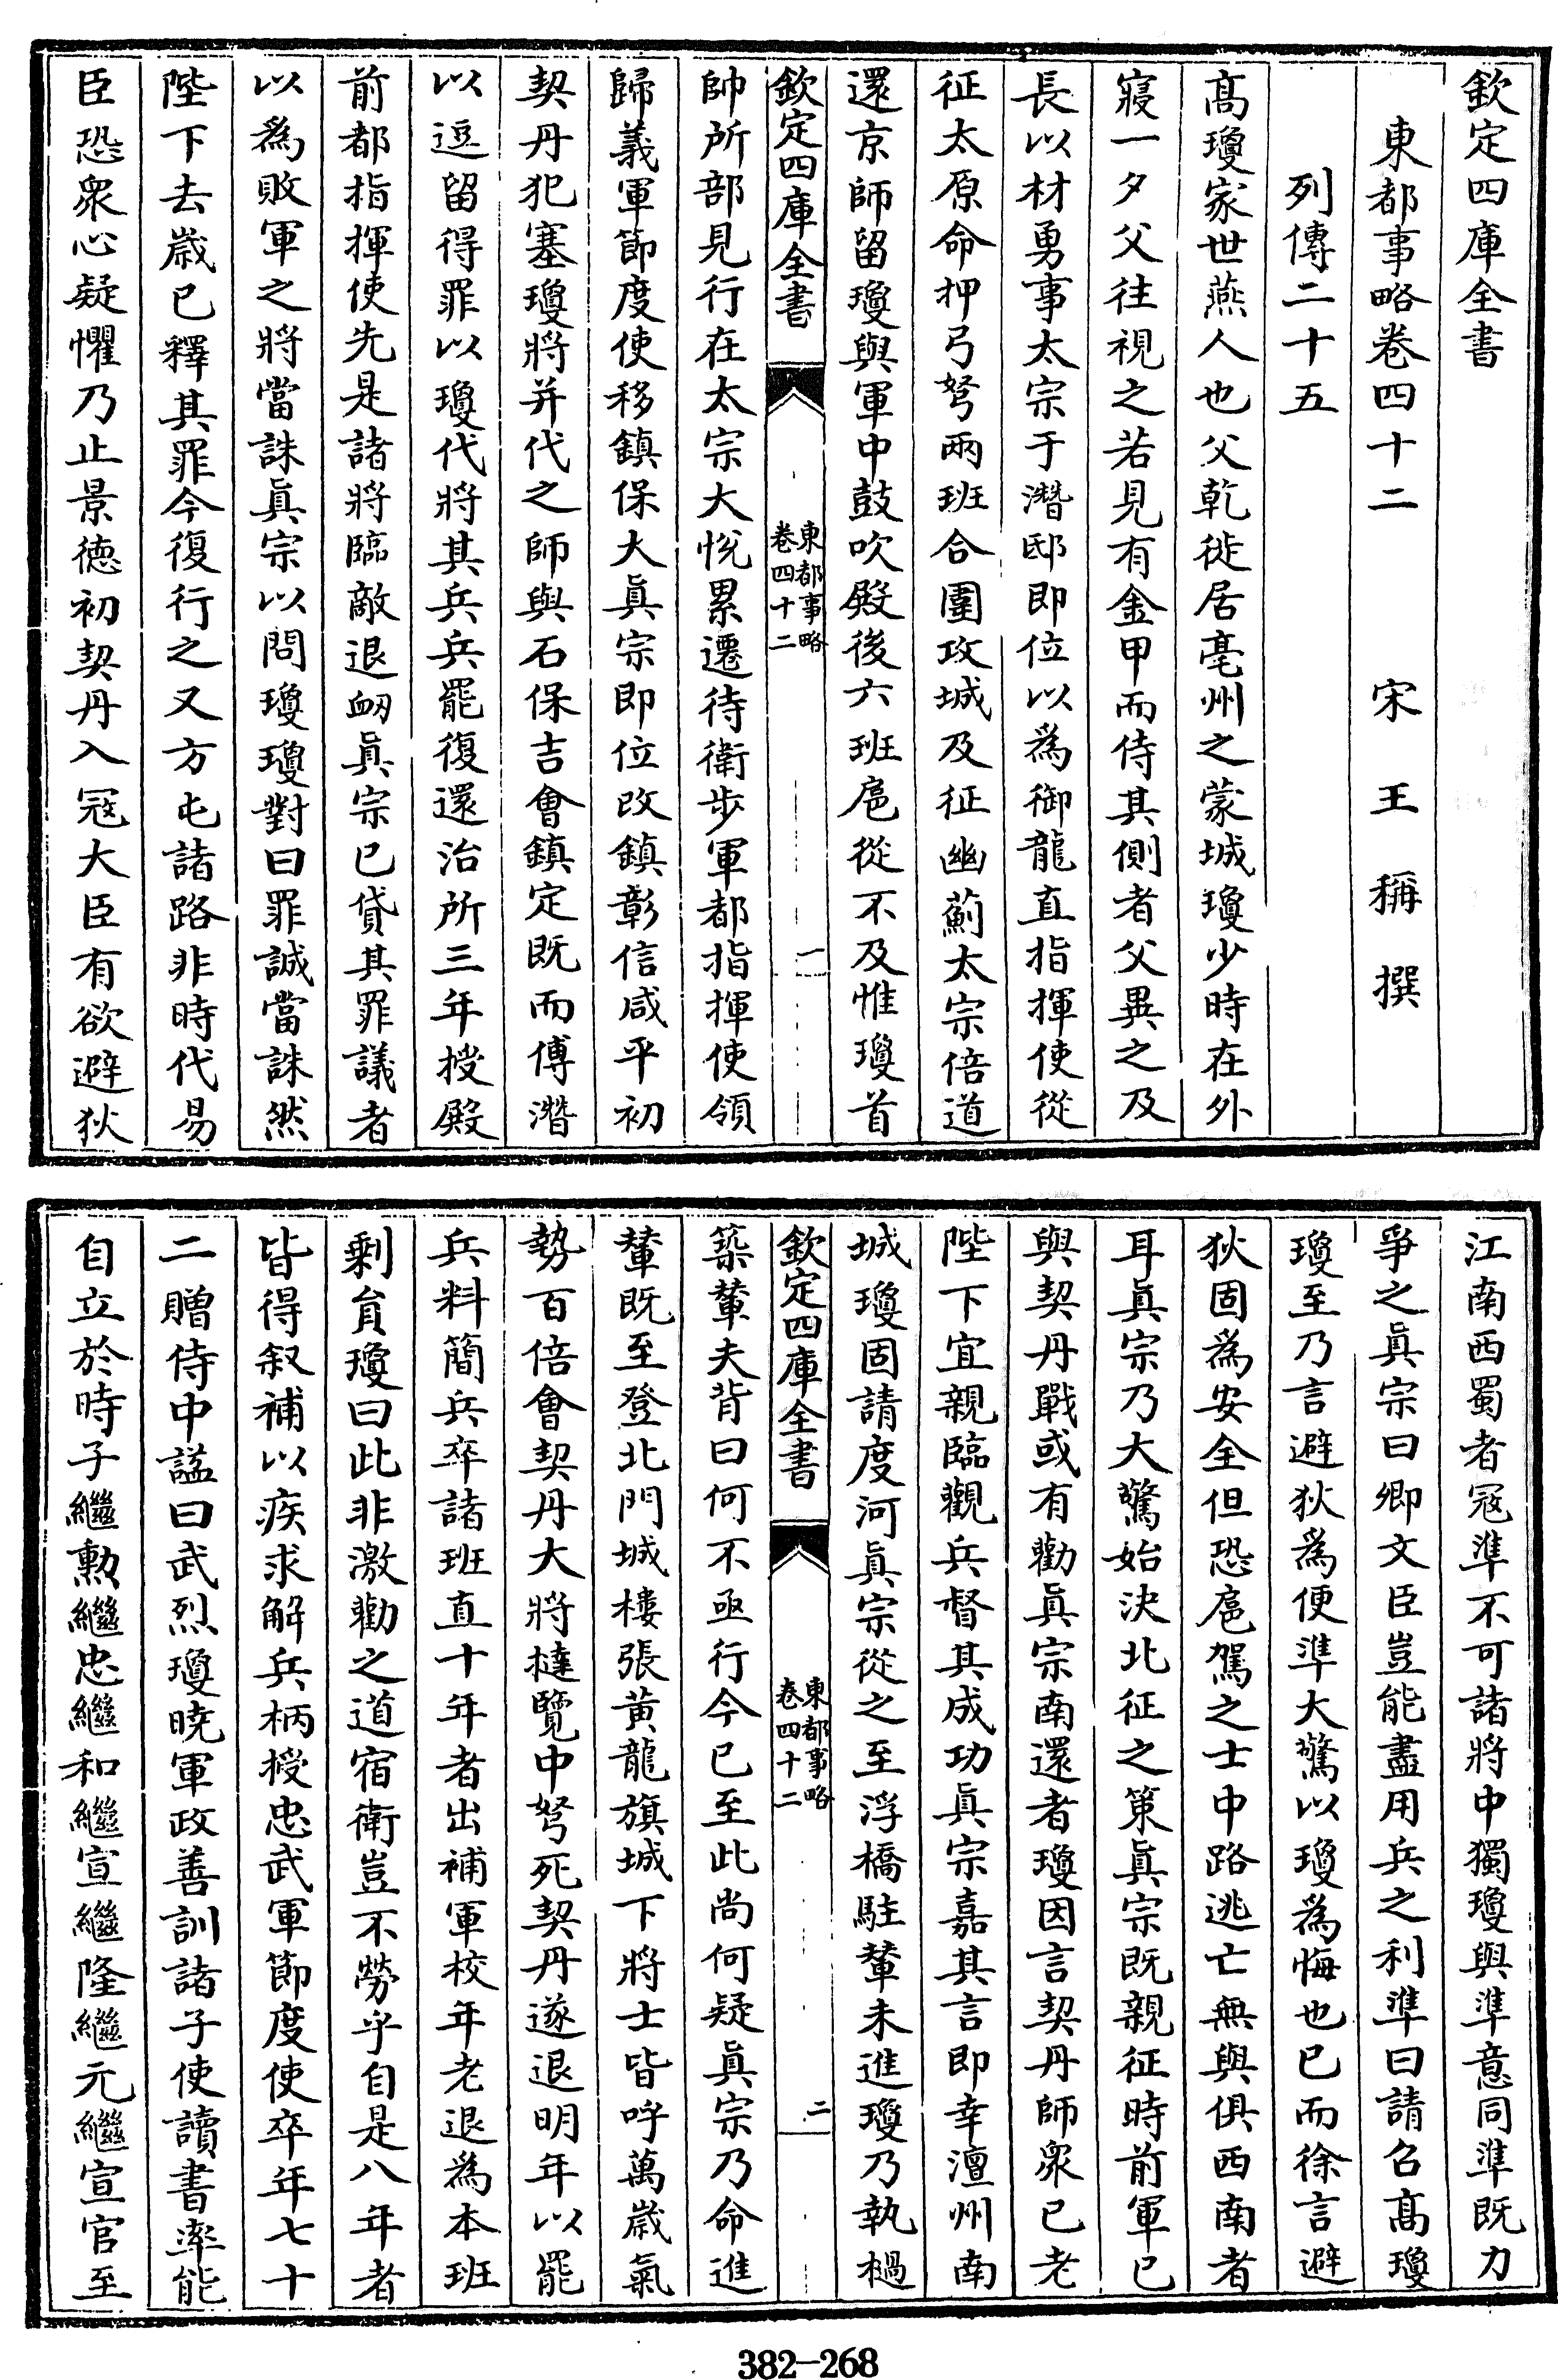 欽定四庫全書
東都事略卷四十二　宋王稱撰
列傳二十五
髙瓊家世燕人也父乾徙居亳州之蒙城瓊少時在外
寢一夕父往視之若見有金甲而侍其側者父異之及
長以材勇事太宗于潛邸即位以為御龍直指揮使從
征太原命押弓弩兩班合圍攻城及征幽薊太宗倍道
還京師留瓊與軍中鼓吹殿後六班扈從不及惟瓊首
欽定四庫全書
東都事略
卷四十二
一
帥所部見行在太宗大悅累遷待衛步軍都指揮使領
歸義軍節度使移鎮保大真宗即位改鎮彰信咸平初
契丹犯塞瓊將并代之師與石保吉會鎮定既而傅潛
以逗留得罪以瓊代將其兵兵罷復還治所三年授殿
前都指揮使先是諸將臨敵退衂真宗已貸其罪議者
以為敗軍之將當誅真宗以問瓊瓊對曰罪誠當誅然
陛下去歲已釋其罪今復行之又方屯諸路非時代易
臣恐衆心疑懼乃止景徳初契丹入冦大臣有欲避狄
江南西蜀者冦準不可諸將中獨瓊與準意同準既力
爭之真宗曰卿文臣豈能盡用兵之利準曰請召髙瓊
瓊至乃言避狄為便準大驚以瓊為悔也已而徐言避
狄固為安全但恐扈駕之士中路逃亡無與俱西南者
耳真宗乃大驚始決北征之策真宗既親征時前軍已
與契丹戰或有勸真宗南還者瓊因言契丹師衆已老
陛下宜親臨觀兵督其成功真宗嘉其言即幸澶州南
城瓊固請度河真宗從之至浮橋駐輦未進瓊乃執檛
欽定四庫全書
東都事略
卷四十二
二
築輦夫背曰何不亟行今已至此尚何疑真宗乃命進
輦既至登北門城樓張黃龍旗城下將士皆呼萬歲氣
勢百倍會契丹大將撻覽中弩死契丹遂退明年以罷
兵料簡兵卒諸班直十年者出補軍校年老退為本班
剩貟瓊曰此非激勸之道宿衛豈不勞乎自是八年者
皆得叙補以疾求解兵柄授忠武軍節度使卒年七十
二贈侍中諡曰武烈瓊曉軍政善訓諸子使讀書率能
自立於時子繼勲繼忠繼和繼宣繼隆繼元繼宣官至
382-268